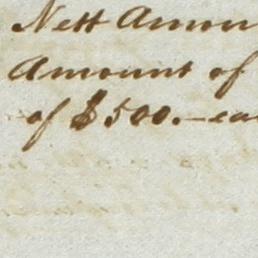 Nett Amoun
Amount of
of $500.— ea